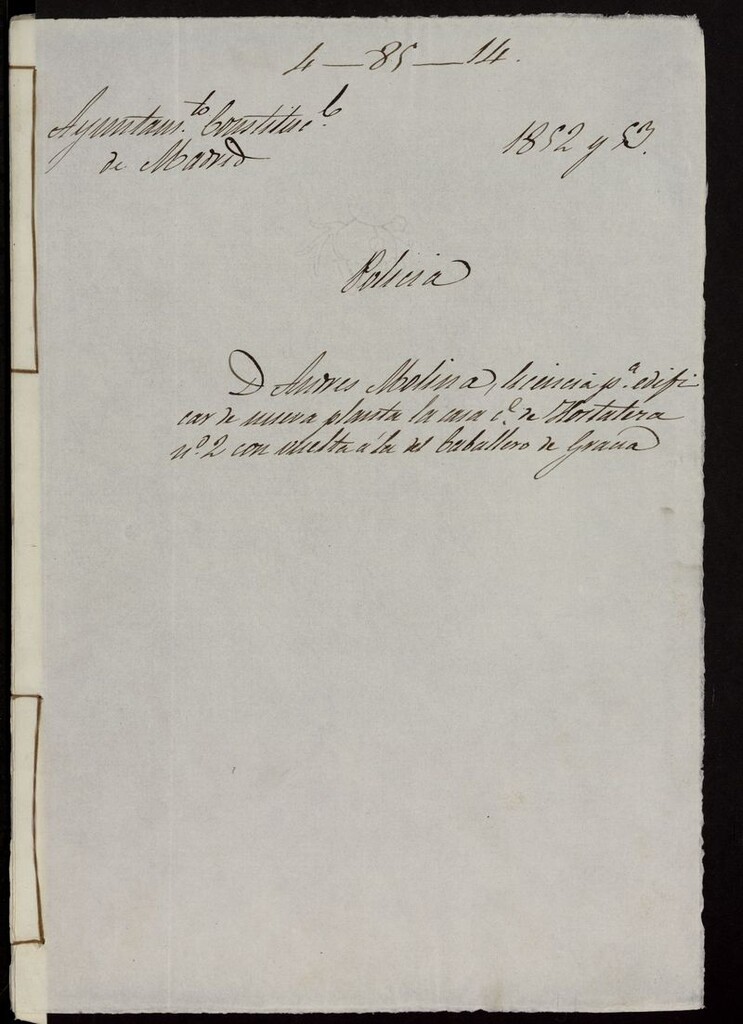 4—85—14.
Ayuntam.to Constituc.l
de Madrid
1852 y 53.
Policia
D Andres Molina, licencia p.a edifi
car de nueva planta la casa c.e de Hortaleza
n.o 2 con vuelta á la del Caballero de Gracia